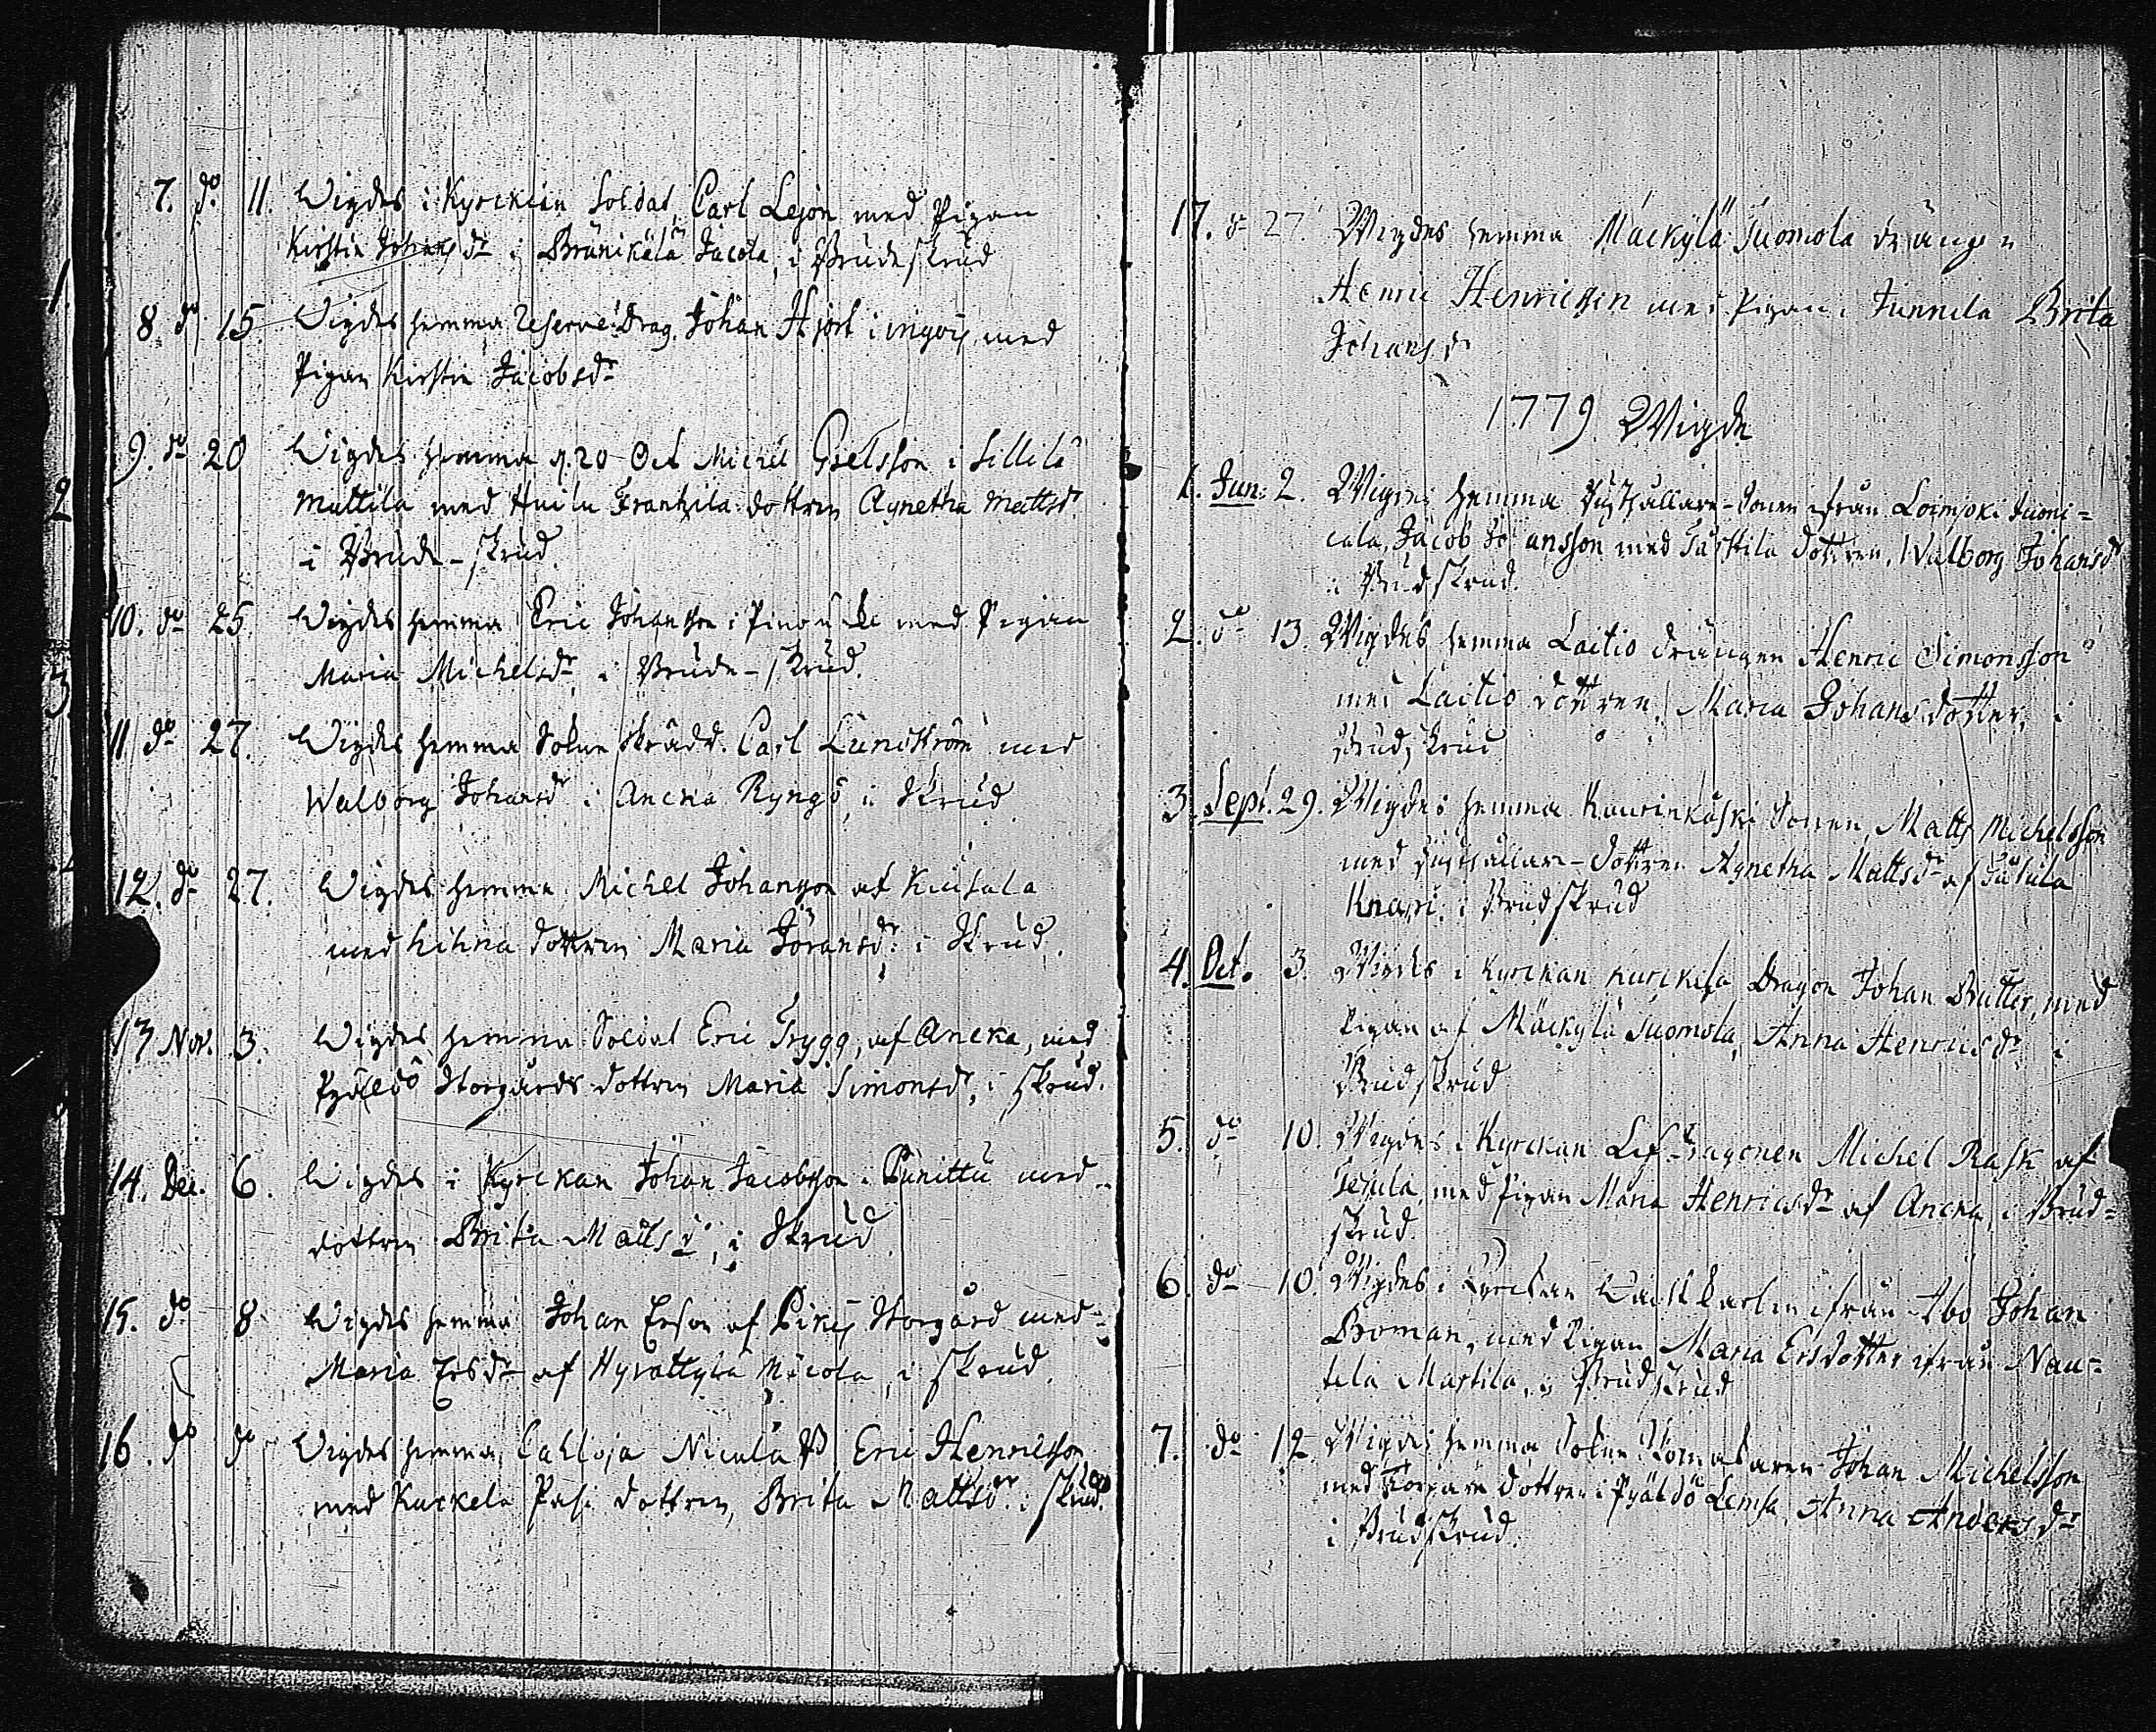 7. do 11. Wigdes i Kyrckian Soldat Carl Lejon med Pigan
Kirstin Johansdr i Bränikälä Jacola, i Brudeskrud
8. do 15. Wigdes hemma Reserve Drag. Johan Hjort i med
Pigan Kirstin Jacobsdr
9. do 20 Wigdes hemma d. 20 Oct Michel i Sillilä
Mattila med Huilu Frantzila dottren Agnetha Mattsdr
i Brude-skrud.
10. do 25. Wigdes hemma Eric Johansson i med Pigan
Maria Michelsdr, i Brude-skrud.
11 do 27. Wigdes hemma Sokne Skrädd. Carl Lundström med
Walborg Johansdr i Ancka Ryngö, i Skrud
12. do 27. Wigdes hemma Michel Johansson af
med dottren Maria Göransdr i Skrud.
13 Nov. 3. Wigdes hemma Soldat Eric Trygg, af Ancka, med
Pyäldö Storgårds dottren Maria Simonsdr, i skrud.
14. Dec. 6. Wigdes i Kyrckan Johan Jacobsson i Punittu med
dottren Brita Matts dr, i Skrud.
15. do 8 Wigdes hemma Johan Ersson af Pikis Storgård med
Maria Ersdr af Hyvättylä Mäcola, i skrud.
16. do do Wigdes hemma Nicula Eric Henricsson
med Kurkela Pasi dottren, Brita Mattsdr i skrud.
17. do 27 Wigdes hemma Mäckylä Suomola drängen
Henric Henricsson med Pigan i Junnila Brita
Johans dr
1779. Wigde
1. Jun: 2. Wigdes hemma Rusthållare-Sonen ifrån Loimjoki
Jacob Johansson med dottren, Walborg Johansdr
i Brudskrud.
2. do 13. Wigdes hemma Laitio drängen Henric Simonsson
med Laitio dottren, Maria Johans dotter, i
Brudskrud
3. Sept. 29. Wigdes hemma Kaurinkoski Sonen, Matts Michelsson
med Rusthållare-dottren Agnetha Mattsdr af
Knapi, i Brudskrud
4. Oct. 3. Wigdes i Kyrckan Kurckela Dragon Johan Butter, med
Pigan af Mäckylä Suomola, Anna Henricsdr i
Brudskrud
5. do 10. Wigdes i Kyrckan Lif-Dragonen Michel Rask af
med Pigan Maria Henricsdr af Ancka, i Brud-
skrud.
6. do 10. Wigdes i Kyrckan Wacktkarlen ifrån Åbo Johan
Boman, med Pigan Maria Ersdotter ifrån Nau-
tela Martila, i Brudskrud
7. do 12. Wigdes hemma Sokne Johan Michelsson
med Torpare dottren i Pyäldö Lemsa, Anna Anders dr
i Brudskrud.
1.
2
3